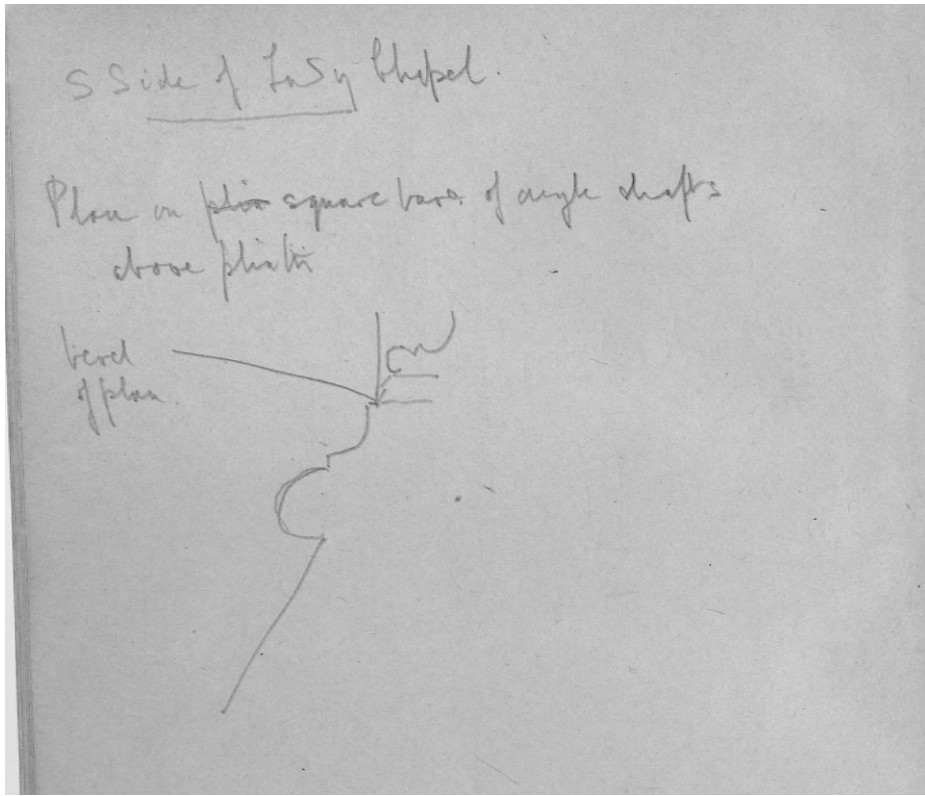 S Side of Lady Chapel.
Plan on plin square base of angle shafts
above plinth
level
of plan.